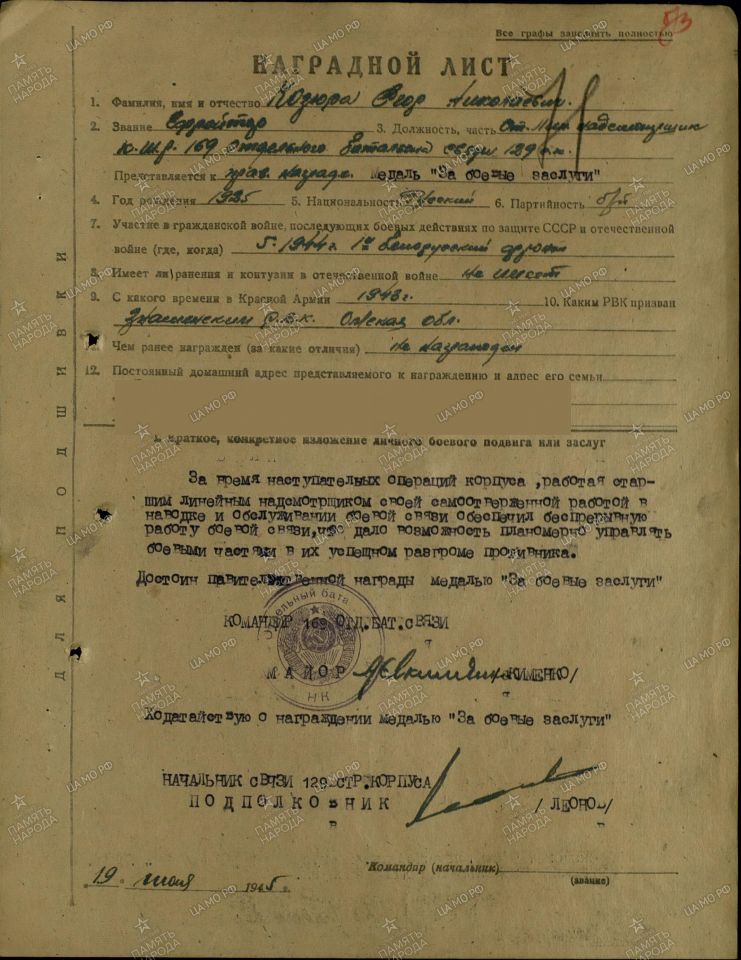 53
Все графы заполнять полностью
НАГРАДНОЙ ЛИСТ
1. Фамилия, имя и отчество Козюра Егор Николаевич.
2. Звание Ефрейтор 3. Должность, часть Ст. лин. надсмотрщик
к.ш.р. 169 отдельного батальона связи 129 с.к.
Представляется к прав. награде. медаль "За боевые заслуги"
4. Год рождения 1925 5. Национальность Русский 6. Партийность б/п
7. Участие в гражданской войне, последующих боевых действиях по защите СССР и отечественной
войне (где, когда) 1944 г. 1й Белорусский фронт
8. Имеет ли ранения и контузии в отечественной войне не имеет
9. С какого времени в Красной Армии 1943 г. 10. Каким РВК призван
Знаменским р.в.к. обл.
11. Чем ранее награжден (за какие отличия) не награжден
12. Постоянный домашний адрес представляемого к награждению и адрес его семьи
I. Краткое, конкретное изложение личного боевого подвига или заслуг
За время наступательных операций корпуса, работая стар-
шим линейным надсмотрщиком своей самоотверженной работой в
наводке и обслуживании боевой связи обеспечил беспрерывную
работу боевой связи, что дало возможность планомерно управлять
боевыми частями в их успешном разгроме противника.
Достоин павительственной награды медалью "За боевые заслуги"
КОМАНДИР 169 ОТД.БАТ.СВЯЗИ
МАЙОР /ЯКИМЕНКО/
Ходатайствую о награждении медалью "За боевые заслуги"
НАЧАЛЬНИК СВЯЗИ 129 СТР.КОРПУСА
ПОДПОЛКОВНИК /ЛЕОНОВ/
Командир (начальник)
(звание)
19 мая 1945 г.
ДЛЯ ПОДШИВКИ
отдельный бата
НК
ПАМЯТЬ НАРОДА
ЦАМО.РФ